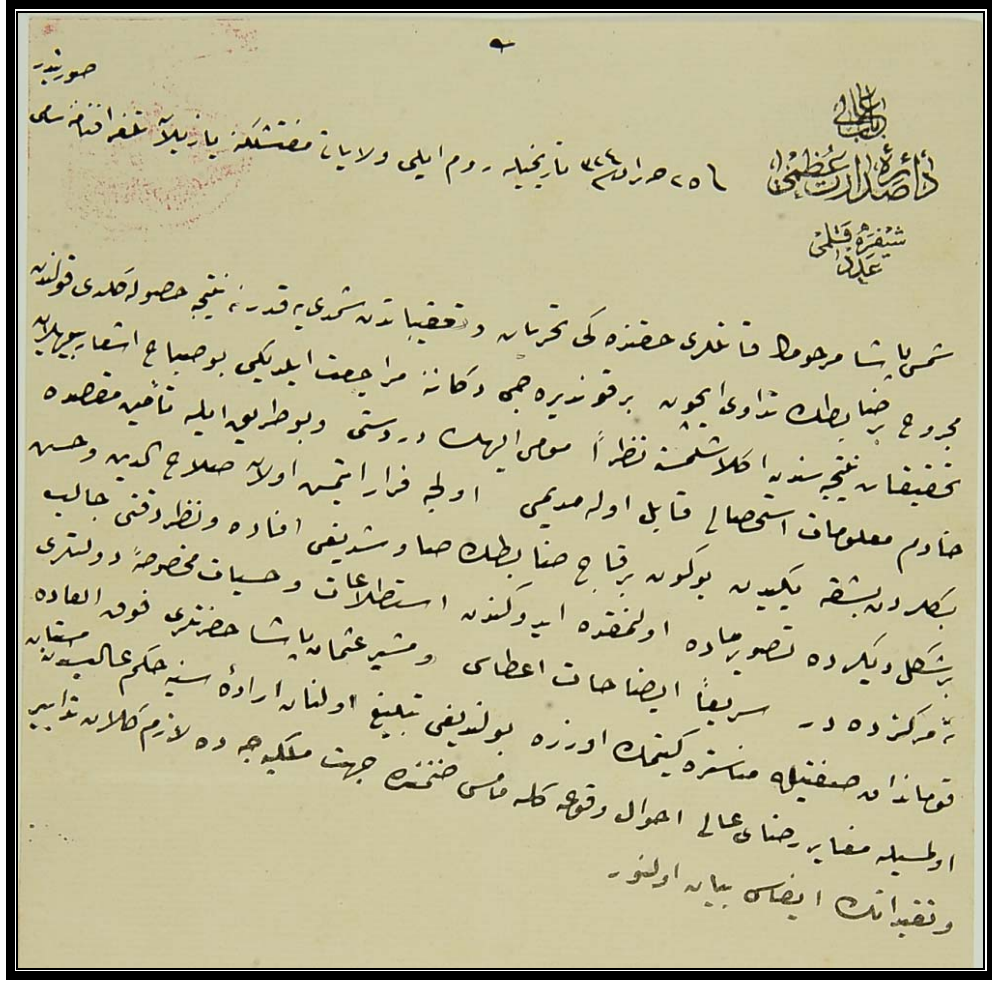 باب عالی
دائرهٔ صدارت عظمی
شیفره قلمی
عدد
صورتیدر
٢٥ حزیران ٣٢٤ تاریخیله روم ایلی ولایاتی مفتشلکنه یازیلان تلغرافنامهٔ سامی
شمسی پاشا مرحومك قاتللری حقنده کی تحریات و تعقیباتدن شمدی یه قدر نه نتیجه حصوله کلدی قولندن
مجروح بر ضابطك تداوی ایچون بر قوندره جی دکاننه مراجعت ایلدیکی بو صباح اشعار
تحقیقات نتیجه سندن اکلاشلمسنه نظراً مومی الیهك دردستی و بو طریق ایله تأمین مقصده
خادم معلومات استحصالی قابل اوله مدیمی اولجه فرار ایتمش اولان صلاح الدین و حسن
بکلردن بشقه یکیدن بوکون بر قاچ ضابطك صاوشدیغی افاده و نظر دقتی جالب
بر شکل دیکرده تصویر ماده اولنمقده ایدوکندن استطلاعات و حسیات مخصوصهٔ دولتلری
نه مرکزده در سریعاً ایضاحات اعطاسی و مشیر عثمان پاشا حضرتلری فوق العاده
قوماندان صفتیله مناستره کیتمك اوزره بولندیغی تبلیغ اولنان ارادهٔ سنیه حکم عالیسندن مستبان
اولمسیله مغایر رضای عالی احوال وقوعه کلمامسی ضمننده جهت ملکیه جه ده لازم کلان تدابیر
و تقیداتك ایفاسی بیان اولنور